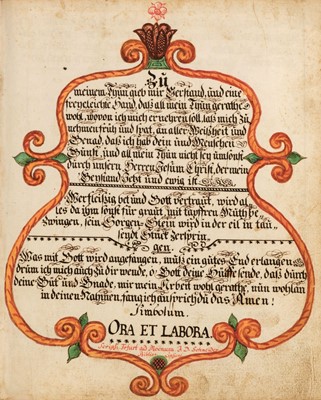 Zu
meinem Thun gieb mir Verstand, und eine
freygeleichte Hand, daß all mein Thun gerathe
wohl, wovon ich mich ernehren soll, laß mich zu
nehmen früh und spat, an aller Weißheit und
Gnad, daß ich hab dein und Menschen
Gunst, und all mein Thun nicht sey umsonst
durch unsern Herren Jesum Christ, der mein
Beystand reich und ewig ist.
Wer fleissig bet und Gott vertraut, wird al-
les da ihm sonst für graut, mit tapffren Muth be-
zwingen, sein Sorgen-Stein wird in der eil in tau-
sendt Stück zersprin-
gen.
Was mit Gott wird angefangen, muß ein gutes End erlangen
drüm ich mich auch zu dir wende, o Gott deine Hülffe sende, daß durch
deine Güt und Gnade, mir mein Arbeit wohl gerathe, nun wohlan
in deinen Nahmen, fang ich an sprich du das Amen!
Simbolum.
ORA ET LABORA.
Scripsit Erfurt J. D. Schneider